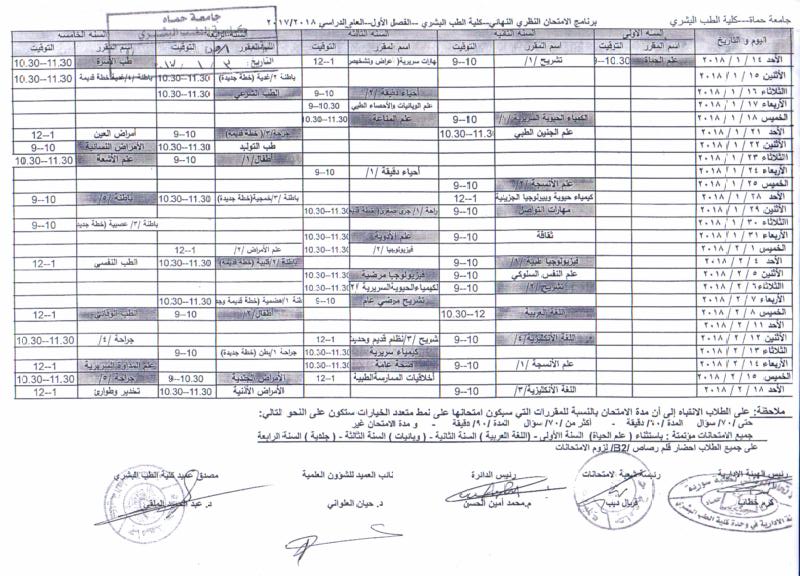 جامعة حماة---كلية الطب البشري
برنامج الامتحان النظري النهائي--كلية الطب البشري - الفصل الأول--العام الدراسي ٢٠١٧/٢٠١٨
جامعة حماه
اليوم و التاريخ السنة الأولى السنة الثانية السنة الثالثة السنة الخامسة
اسم المقرر التوقيت اسم المقرر التوقيت اسم المقرر التوقيت التوقيت اسم المقرر التوقيت
الأحد ١٤ / ١ / ٢٠١٨ علم الحياة 9--10.30 تشريح /١/ 9--10 12--1 طب الأسرة 10.30--11.30
الأثنين ١٥ / ١ / ٢٠١٨ باطنة /٢/غدية (خطة جديدة) 10.30--11.30
الثلاثاء ١٦ / ١ / ٢٠١٨ أحياء دقيقة /٢/ 9--10 الطب الشرعي 10.30--11.30
الأربعاء ١٧ / ١ / ٢٠١٨ علم الوبائيات والأحصاء الطبي 9--10.30
الخميس ١٨ / ١ / ٢٠١٨ الكمياء الحيوية السريرية /١/ 9--10 علم المناعة 10.30--11.30
الأحد ٢١ / ١ / ٢٠١٨ علم الجنين الطبي 10.30--11.30 جراحة/٣/(خطة قديمة) 9--10 أمراض العين 12--1
الأثنين ٢٢ / ١ / ٢٠١٨ طب التوليد 10.30--11.30 الأمراض النسائية 9--10
الثلاثاء ٢٣ / ١ / ٢٠١٨ أطفال /١/ 9--10 علم الأشعة 10.30--11.30
الأربعاء ٢٤ / ١ / ٢٠١٨ أحياء دقيقة /١/ 9--10
الخميس ٢٥ / ١ / ٢٠١٨ علم الأنسجة /٢/ 9--10
الأحد ٢٨ / ١ / ٢٠١٨ كيمياء حيوية وبيولوجيا الجزيئية 12--1 باطنة /٣/خمجية(خطة جديدة) 10.30--11.30 باطنة /٥/ 9--10
الأثنين ٢٩ / ١ / ٢٠١٨ مهارات التواصل 9--10 10.30--11.30
الثلاثاء ٣٠ / ١ / ٢٠١٨ باطنة /٣/ عصبية (خطة جديدة) 9--10.30
الأربعاء ٣١ / ١ / ٢٠١٨ ثقافة 9--10 علم الأدوية 10.30--11.30
الخميس ١ / ٢ / ٢٠١٨ فيزيولوجيا /٢/ 10.30--11.30 علم الأمراض /٢/ 12--1
الأحد ٤ / ٢ / ٢٠١٨ فيزيولوجيا طبية /١/ 9--10 باطنة /٢/قلبية (خطة قديمة) 10.30--11.30 الطب النفسي 12--1
الأثنين ٥ / ٢ / ٢٠١٨ علم النفس السلوكي 9--10 فيزيولوجيا مرضية 10.30--11.30
الثلاثاء ٦ / ٢ / ٢٠١٨ تشريح /٢/ 9--10 لكيمياءالحيويةالسريرية /٢/ 10.30--11.30
الأربعاء ٧ / ٢ / ٢٠١٨ تشريح مرضي عام 9--10 10.30--11.30
الخميس ٨ / ٢ / ٢٠١٨ اللغة العربية 10.30--12 أطفال /٢/ 9--10 الطب الوقائي 12--1
الأحد ١١ / ٢ / ٢٠١٨
الأثنين ١٢ / ٢ / ٢٠١٨ اللغة الأنكليزية /٤/ 9--10 12--1 جراحة /٤/ 10.30--11.30
الثلاثاء ١٣ / ٢ / ٢٠١٨ كيمياء سريرية 10.30--11.30 جراحة ١/بطن (خطة جديدة) 9--10
الأربعاء ١٤ / ٢ / ٢٠١٨ علم الأنسجة /١/ 9--10 صحة عامة 10.30--11.30 12--1
الخميس ١٥ / ٢ / ٢٠١٨ أخلاقيات الممارسةالطبية 12--1 الأمراض الجلدية 9--10.30 جراحة /٥/ 10.30--11.30
الأحد ١٨ / ٢ / ٢٠١٨ اللغة الأنكليزية/٣/ 9--10 الأمراض الأذنية 10.30--11.30 تخدير وطوارئ 12--1
ملاحظة: على الطلاب الانتباه إلى أن مدة الامتحان بالنسبة للمقررات التي سيكون امتحانها على نمط متعدد الخيارات ستكون على النحو التالي:
حتى /٧٠/ سؤال المدة /٦٠/ دقيقة - أكثر من /٧٠/ سؤال المدة /٩٠/ دقيقة - و مدة الامتحان غير
جميع الامتحانات مؤتمتة : باستثناء ( علم الحياة) السنة الأولى- (اللغة العربية ) السنة الثانية - ( وبائيات ) السنة الثالثة - ( جلدية ) السنة الرابعة
على جميع الطلاب احضار قلم رصاص /B2/ لزوم الامتحانات
رئيس الهيئة الإدارية رئيسة شعبة الامتحانات رئيس الدائرة نائب العميد للشؤون العلمية مصدق عميد كلية الطب البشري
كرم خطاب فريال ديب م.محمد أمين الحسن د. حيان العلواني